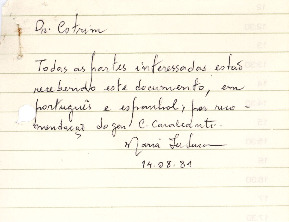 Dr. Cotrim
Todas as partes interessadas estão
recebendo este documento, em
português e espanhol, por reco-
mendação do gen. C. Cavalcanti.
Maria
14.08.81